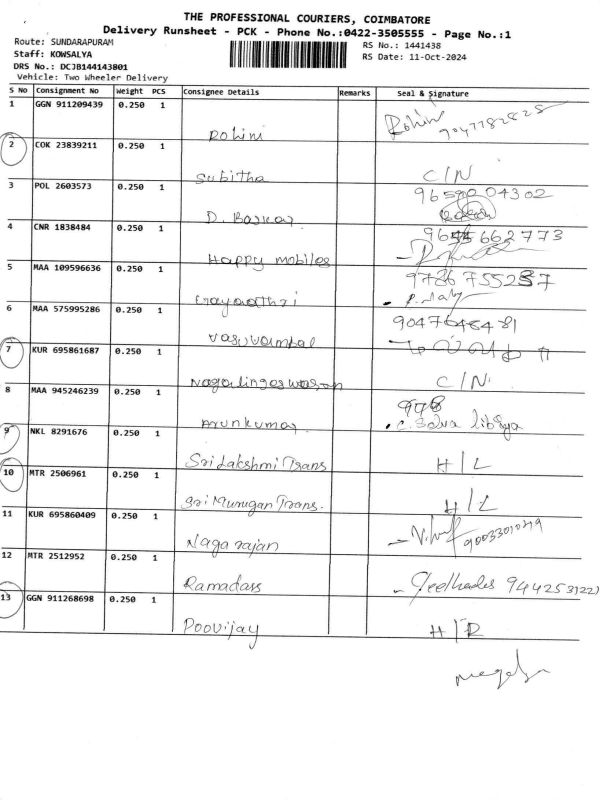 THE PROFESSIONAL COURIERS, COIMBATORE
Delivery Runsheet - PCK - Phone No.:0422-3505555 - Page No.:1
Route: SUNDARAPURAM
RS No.: 1441438
Staff: KOWSALYA
RS Date: 11-Oct-2024
DRS No.: DCJB144143801
Vehicle: Two Wheeler Delivery
S No Consignment No Weight PCS Consignee Details Remarks Seal & Signature
1 GGN 911209439 0.250 1 Rohini Rohini
2 COK 23839211 0.250 1 Subitha C/N
3 POL 2603573 0.250 1 D. Baskar 9659004302
4 CNR 1838484 0.250 1 Happy mobiles
5 MAA 109596636 0.250 1
6 MAA 575995286 0.250 1
7 KUR 695861687 0.250 1 Nagalingeswaran C/N
8 MAA 945246239 0.250 1 Arunkumar
9 NKL 8291676 0.250 1 Sri Lakshmi Trans H/L
10 MTR 2506961 0.250 1 Sri Murugan Trans. H/L
11 KUR 695860409 0.250 1 Nagarajan
12 MTR 2512952 0.250 1 Ramadass
13 GGN 911268698 0.250 1 Poovijay H/R